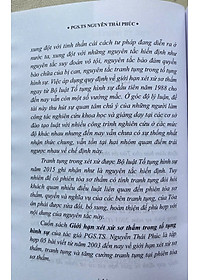 • PGS.TS NGUYỄN THÁI PHÚC •
xung đột với tinh thần cải cách tư pháp đang diễn ra ở
nước ta, xung đột với những nguyên tắc hiến định như
nguyên tắc suy đoán vô tội, nguyên tắc bảo đảm quyền
bào chữa của bị can, nguyên tắc tranh tụng trong tố tụng
hình sự. Việc áp dụng quy định về giới hạn xét xử sơ thẩm
ngay từ Bộ luật Tố tụng hình sự đầu tiên năm 1988 cho đến
nay vẫn còn một số vướng mắc. Ở góc độ lý luận, đề tài
này thu hút sự quan tâm chú ý của những người làm
công tác nghiên cứu khoa học và giảng dạy tại các cơ sở
đào tạo luật với nhiều công trình nghiên cứu ở các mức
độ khác nhau nhưng đến nay vẫn chưa có sự thống nhất
nhận thức chung, vẫn tồn tại hai nhóm quan điểm trái
ngược nhau về chế định này.
Tranh tụng trong xét xử được Bộ luật Tố tụng hình sự
năm 2015 ghi nhận như là nguyên tắc hiến định. Tuy
nhiên để có phiên tòa sơ thẩm có tính tranh tụng đòi hỏi
khách quan nhiều điều luật liên quan đến phiên tòa sơ
thẩm, quyền và nghĩa vụ của các bên trong đó, của Tòa
án phải được sửa đổi, bổ sung, hoàn thiện để phù hợp với
nội dung của nguyên tắc này.
Cuốn sách Giới hạn xét xử sơ thẩm trong tố tụng
hình sự của tác giả PGS.TS. Nguyễn Thái Phúc là tập
hợp 05 bài viết từ năm 2003 đến nay về giới hạn xét xử sơ
thẩm, tranh tụng và tăng cường tranh tụng tại phiên tòa
sơ thẩm.